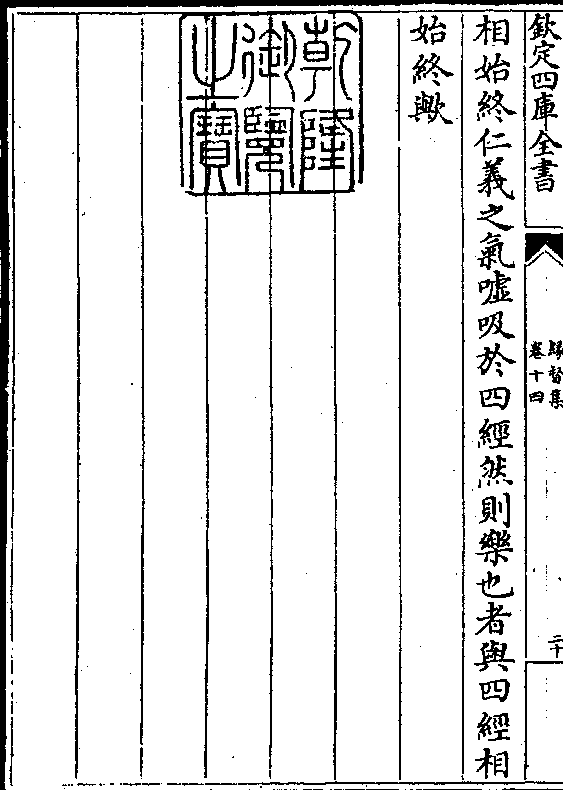 欽定四庫全書
緣督集
卷十四
二十
相始終仁義之氣噓吸於四經然則樂也者與四經相
始終歟
乾隆
御覽
之寶